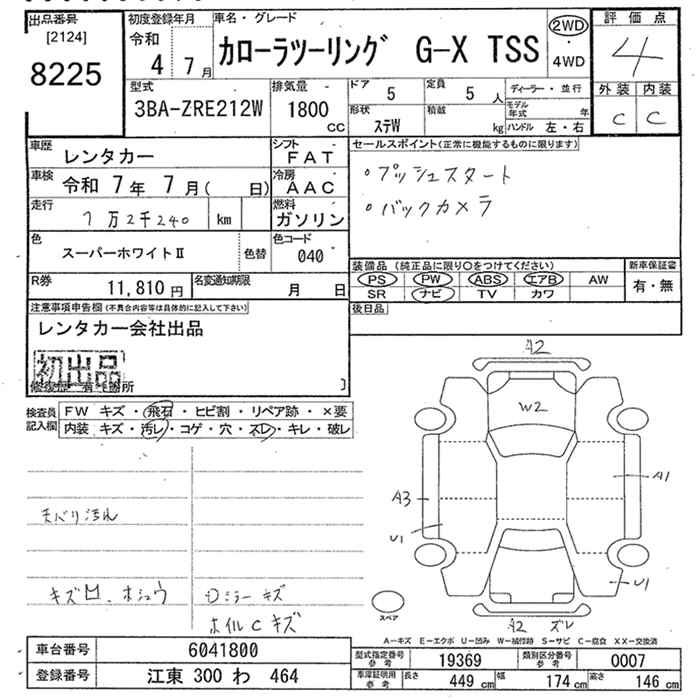 出品番号
[2124]
8225
初度登録年月
令和
4 7月
車名・グレード
カローラツーリング G-X TSS
2WD
・
4WD
評価点
4
外装 内装
C C
型式
3BA-ZRE212W
排気量
1800
CC
ドア 5
定員 5 人
形状
ステW
積載
kg
ディーラー・並行
モデル年式 年
ハンドル 左・右
車歴
レンタカー
シフト
FAT
車検
令和 7年 7月( 日)
冷房
AAC
走行
1万2千240 km
燃料
ガソリン
色
スーパーホワイトⅡ
色替
色コード
040
R券
11,810円
名変通知期限
月 日
セールスポイント(正常に機能するものに限ります)
・プッシュスタート
・バックカメラ
装備品(純正品に限り○をつけてください)
PS PW ABS エアB AW
SR ナビ TV カワ
新車保証書
有・無
後日品
注意事項申告欄(不具合内容等は具体的に記入して下さい)
レンタカー会社出品
初出品
修復歴 有 箇所
検査員
記入欄
FW キズ・飛石・ヒビ割・リペア跡・×要
内装 キズ・汚レ・コゲ・穴・スレ・キレ・破レ
天バリ汚れ
キズ凹、ホシュウ
ミラーキズ
ホイルCキズ
A2
W2
A1
A3
U1
U1
A2 ズレ
スペア
A-キズ E-エクボ U-凹み W-補修跡 S-サビ C-腐食 XX-交換済
車台番号
6041800
登録番号
江東 300 わ 464
型式指定番号
参考
19369
類別区分番号
参考
0007
車庫証明用
参考
長さ 449 cm
幅 174 cm
高さ 146 cm